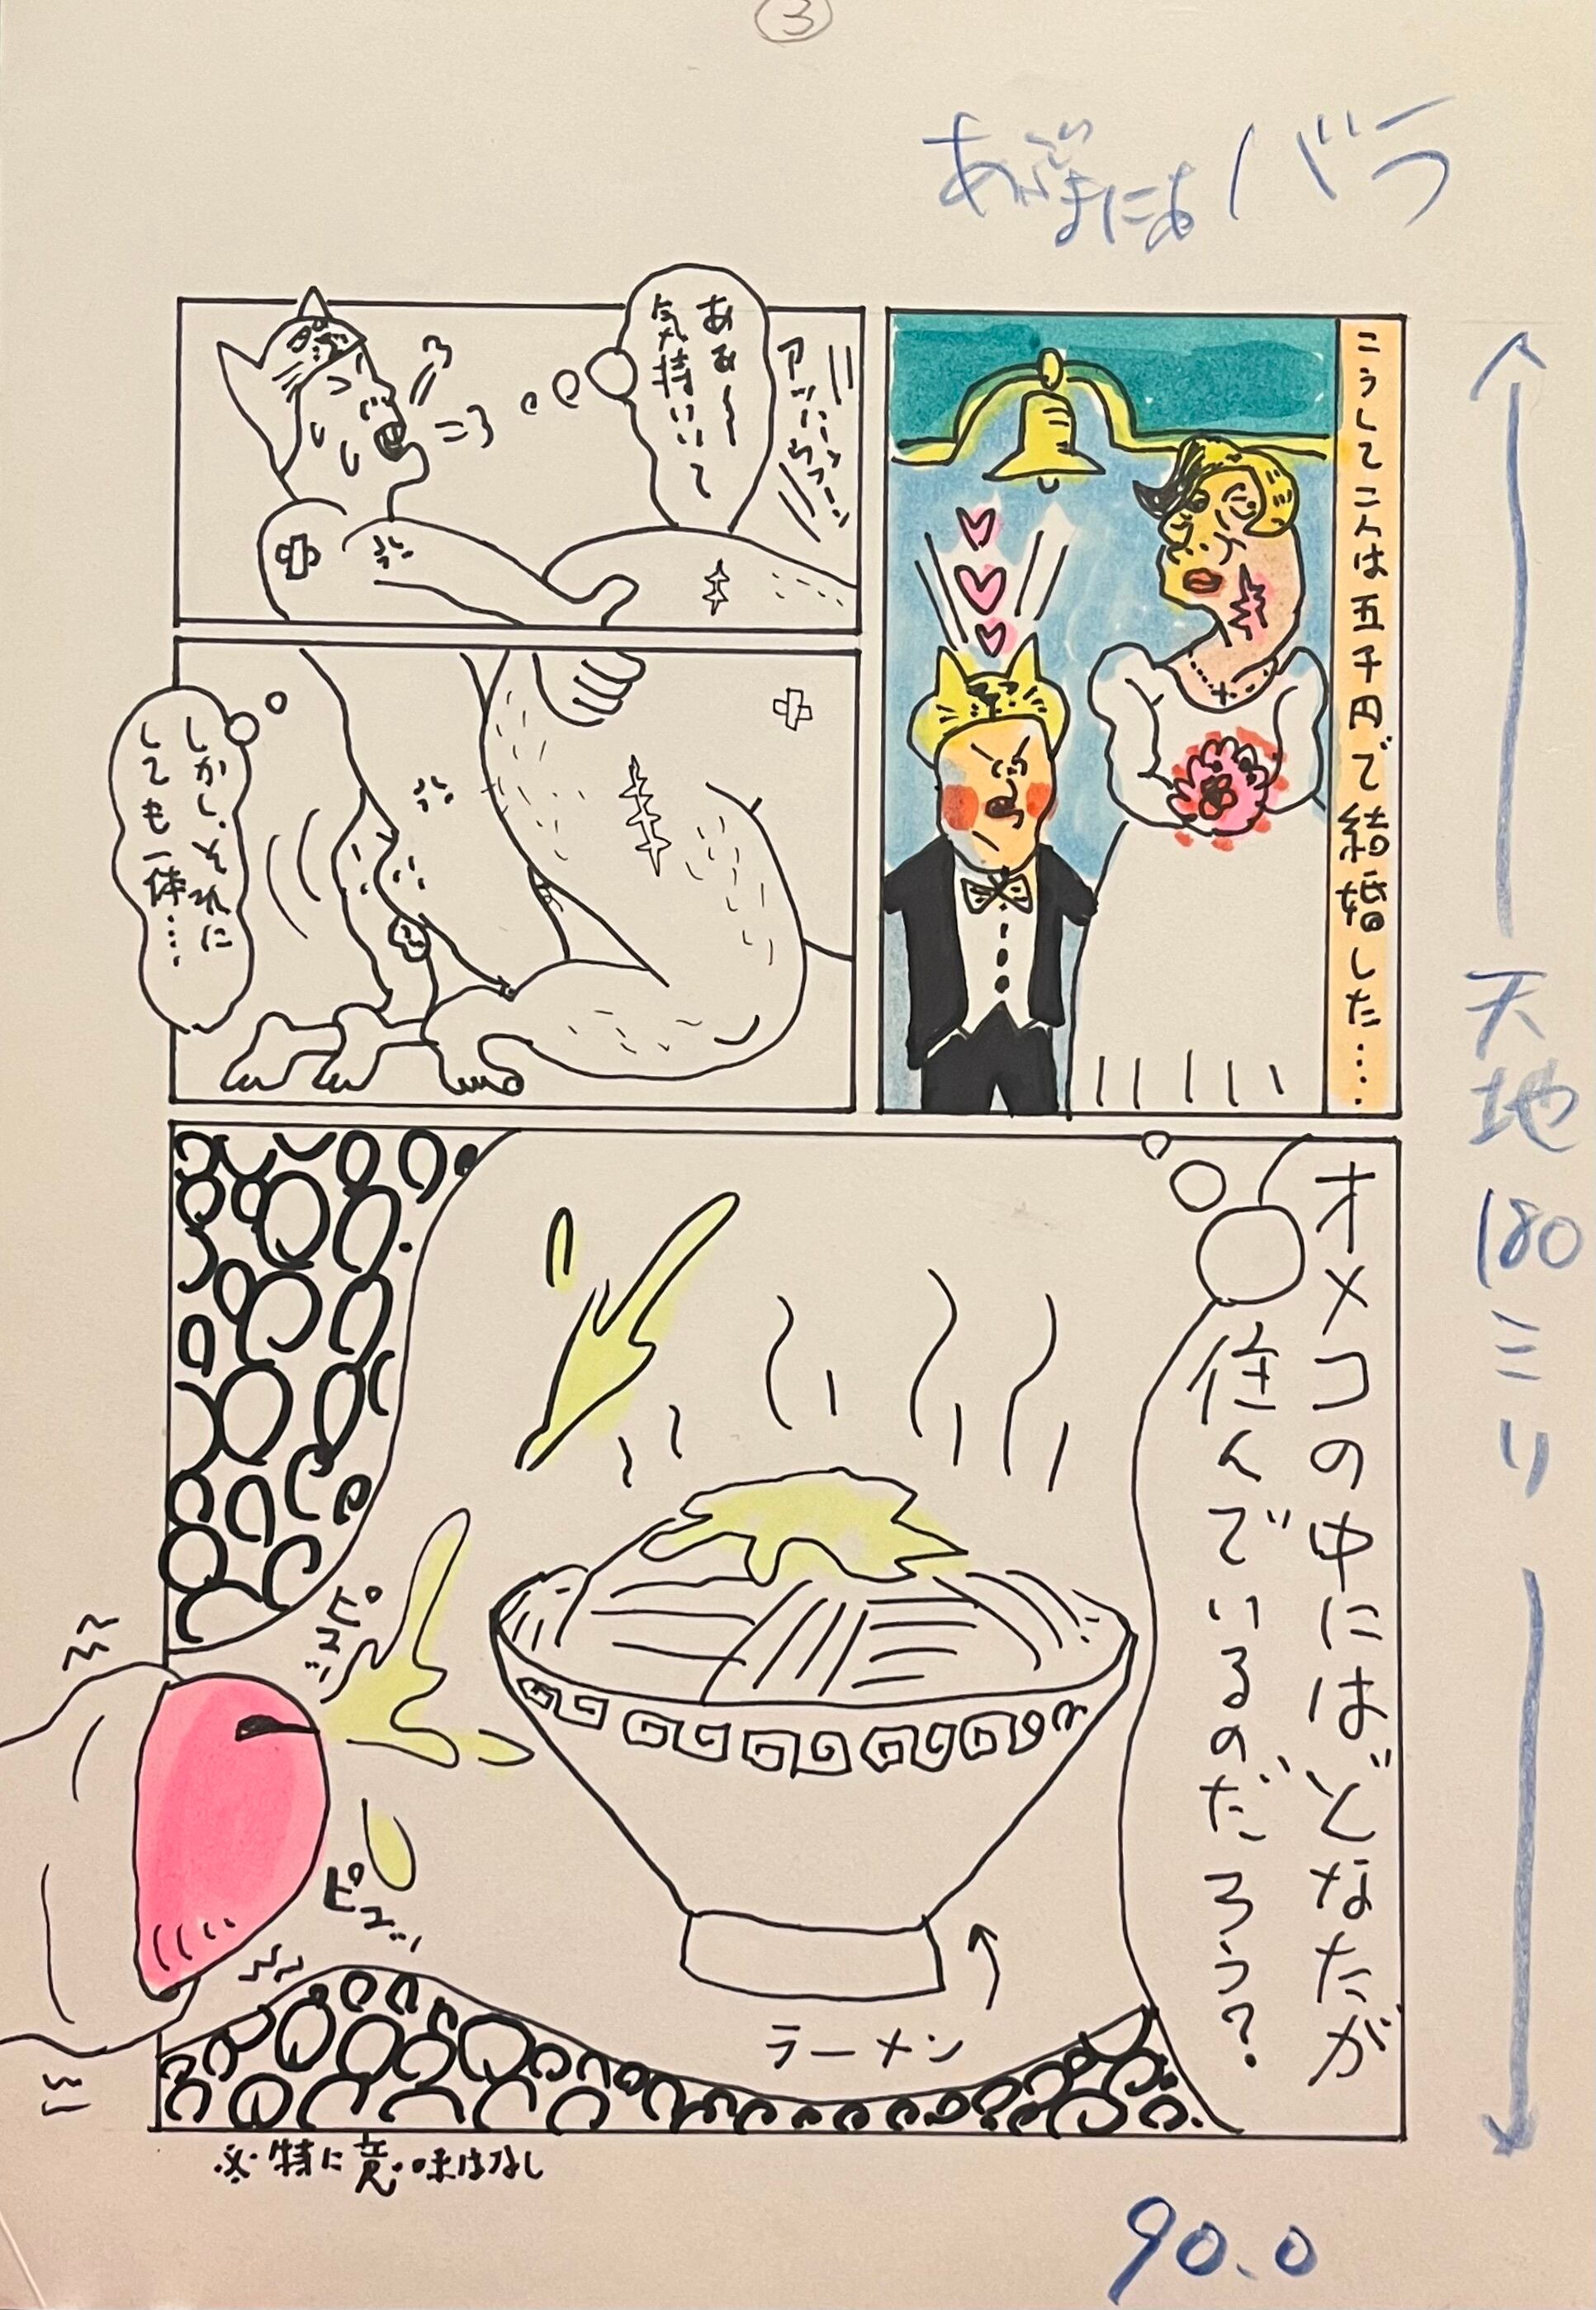 3
バラ
こうして二人は五千円で結婚した……
ああ〜
気持いいて
しかし、それに
しても一体……
オメコの中にはどなたが
住んでいるのだろう?
ピュッ
ピュッ
ラーメン
※特に意味はなし
天地180ミリ
90.0